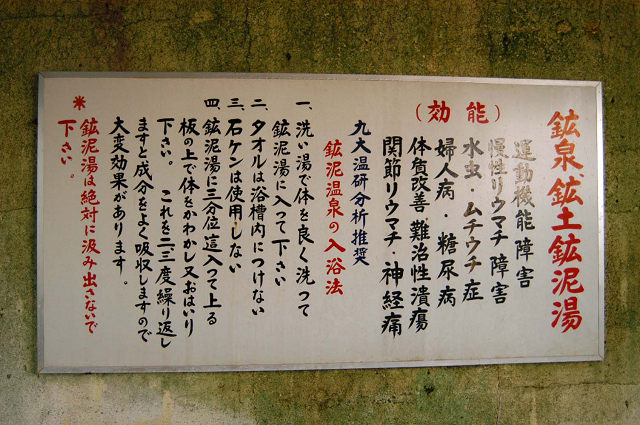 鉱泉鉱土鉱泥湯
(効能)
運動機能障害
慢性リウマチ障害
水虫・ムチウチ症
婦人病・糖尿病
体質改善難治性潰瘍
関節リウマチ・神経痛
九大温研分析推奨
鉱泥温泉の入浴法
一、洗い湯で体を良く洗って
鉱泥湯に入って下さい
二、タオルは浴槽内につけない
三、石ケンは使用しない
四、鉱泥湯に三分位這入って上る
板の上で体をかわかし又おはいり
下さい。これを二、三度繰り返し
ますと成分をよく吸収しますので
大変効果があります。
*鉱泥湯は絶対に汲み出さないで
下さい。